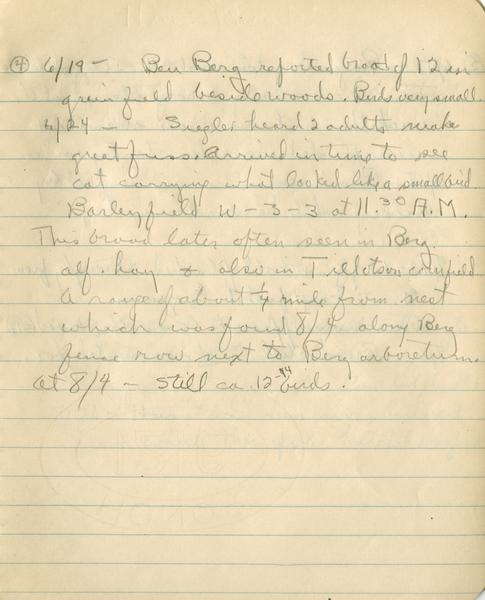 ④ 6/19 - Ben Berg reported brood of 12 in
grain field beside woods. Birds very small.
6/24 - Siegler heard 2 adults make
great fuss. Arrived in time to see
cat carrying what looked like a small bird.
Barley field W-3-3 at 11.30 A.M.
This brood later often seen in Berg
alf. hay & also in Tillotson cornfield
A range of about 1/4 mile from nest
which was found 8/4 along Berg
fence row next to Berg arboretum.
At 8/4 - still ca. 12-14 birds.